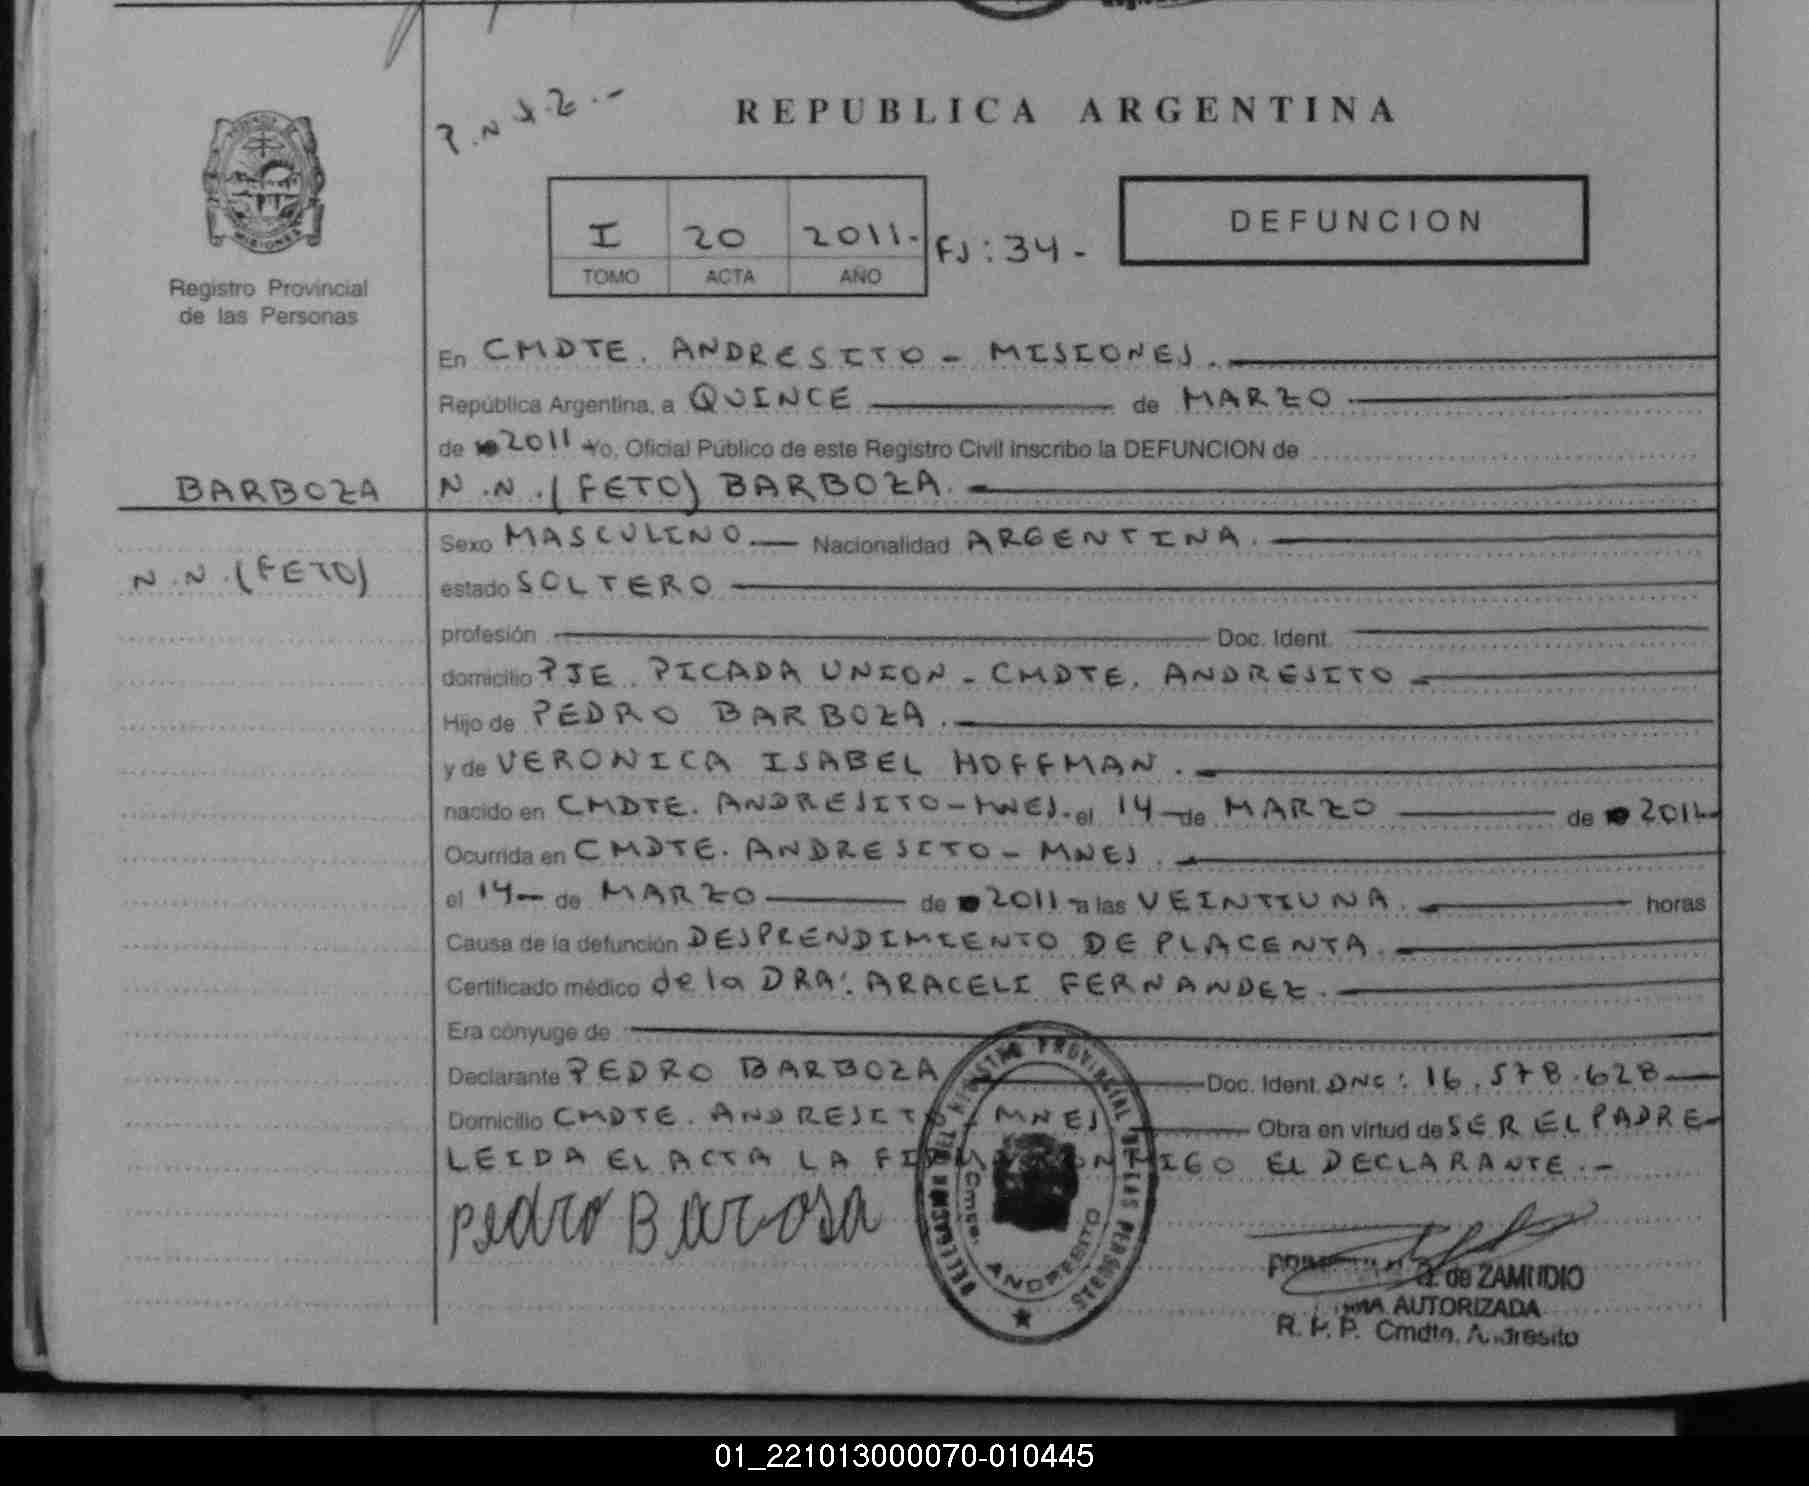 REPUBLICA ARGENTINA
MISIONES
Registro Provincial
de las Personas
I 20 2011.- FJ: 34-
TOMO ACTA AÑO
DEFUNCION
En CMDTE. ANDRESITO - MISIONES.
República Argentina, a QUINCE de MARZO
de 2011 Yo, Oficial Público de este Registro Civil inscribo la DEFUNCION de
BARBOZA
N.N.(FETO) BARBOZA.
N.N.(FETO)
Sexo MASCULINO. Nacionalidad ARGENTINA.
estado SOLTERO
profesión Doc. Ident.
domicilio PJE. PICADA UNION - CMDTE. ANDRESITO
Hijo de PEDRO BARBOZA.
y de VERONICA ISABEL HOFFMAN.
nacido en CMDTE. ANDRESITO-MNES. el 14 de MARZO de 2011
Ocurrida en CMDTE. ANDRESITO - MNES.
el 14 de MARZO de 2011 a las VEINTIUNA. horas
Causa de la defunción DESPRENDIMIENTO DE PLACENTA.
Certificado médico de la DRA: ARACELI FERNANDEZ.
Era cónyuge de
Declarante PEDRO BARBOZA Doc. Ident. DNI: 16.578.628
Domicilio CMDTE. ANDRESITO - MNES Obra en virtud de SER EL PADRE
LEIDA EL ACTA LA FIRMA CONMIGO EL DECLARANTE.-
Pedro Barosa
DELEGACION REGISTRO PROVINCIAL DE LAS PERSONAS
ANDRESITO
G. de ZAMUDIO
AUTORIZADA
R. P. P. Cmdte. Andresito
01_221013000070-010445